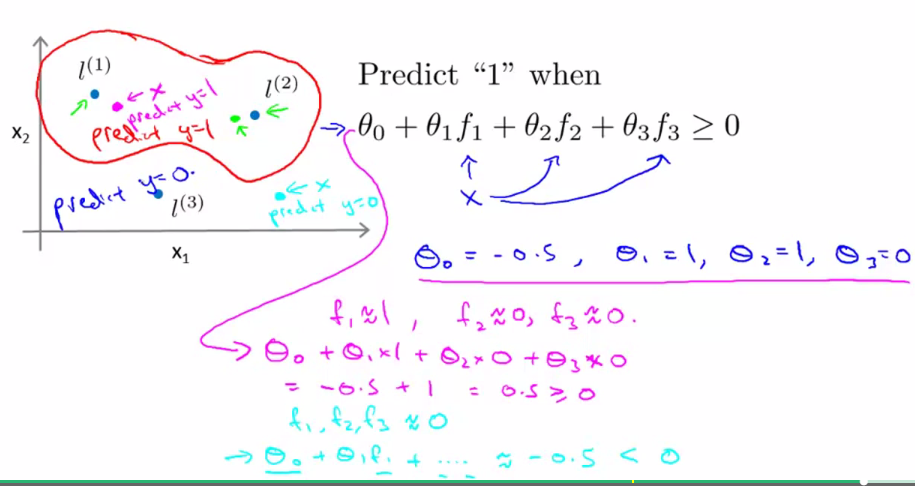 l^{(1)}
← x
predict y=1
l^{(2)}
predict y=1
x₂
predict y=0.
l^{(3)}
← x
predict y=0
x₁
Predict “1” when
θ₀ + θ₁f₁ + θ₂f₂ + θ₃f₃ ≥ 0
x
θ₀ = -0.5, θ₁ = 1, θ₂ = 1, θ₃ = 0
f₁ ≈ 1, f₂ ≈ 0, f₃ ≈ 0.
→ θ₀ + θ₁×1 + θ₂×0 + θ₃×0
= -0.5 + 1 = 0.5 ≥ 0
f₁, f₂, f₃ ≈ 0
→ θ₀ + θ₁f₁ + .... ≈ -0.5 < 0